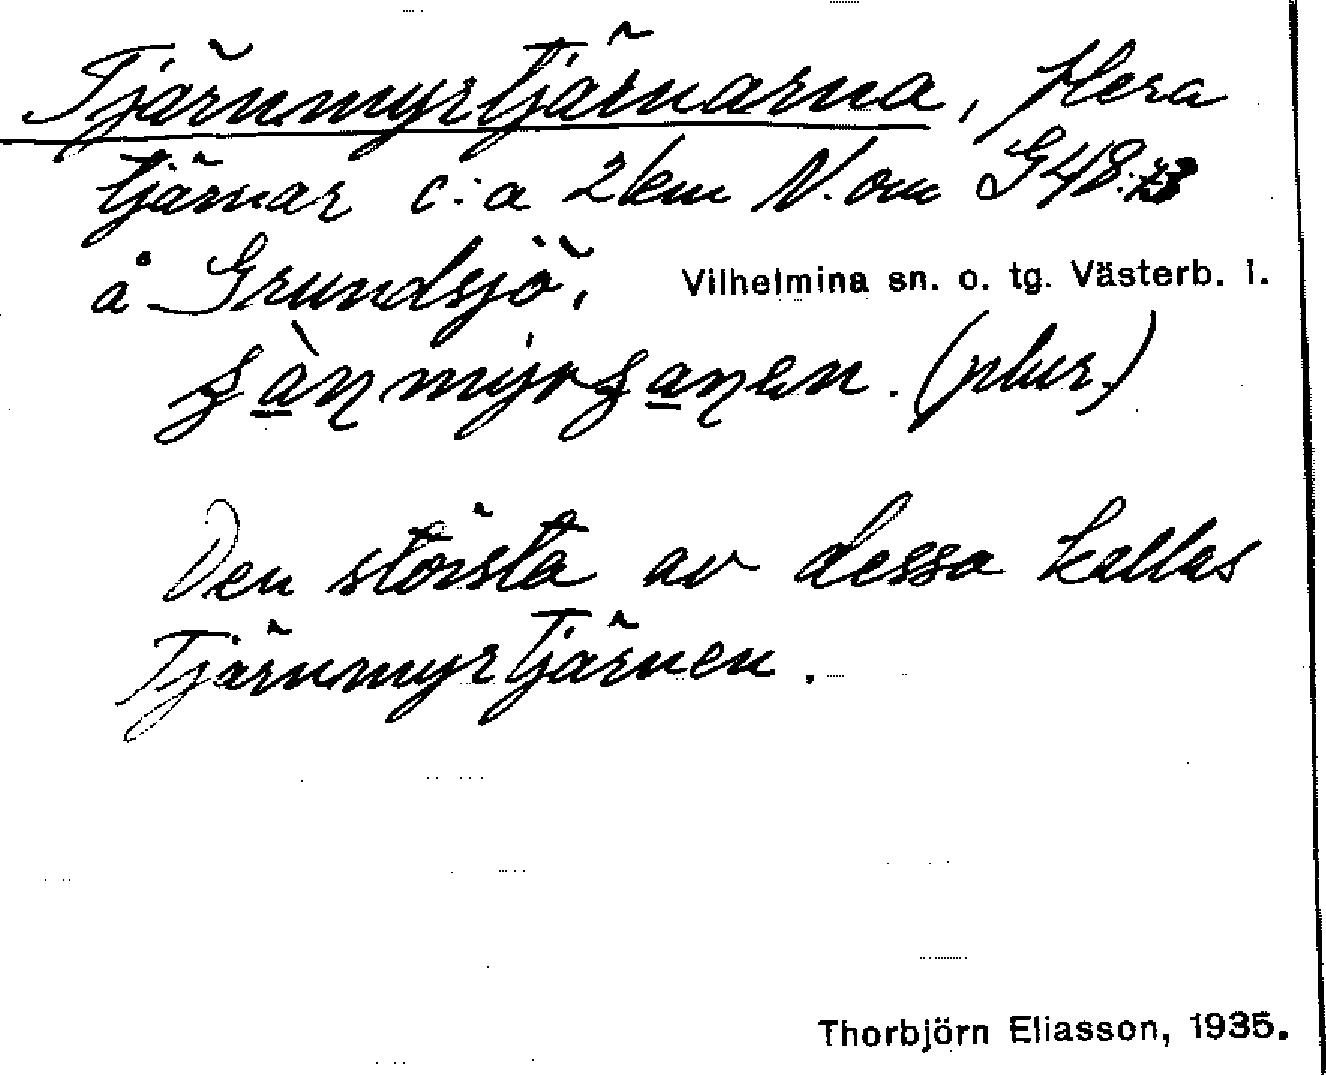 Tjärnmyrtjärnarna, flera
tjärnar c:a 2 km N. om G48:
å Grundsjö.
Vilhelmina sn. o. tg. Västerb. l.
(plur.)
Den största av dessa kallas
Tjärnmyrtjärnen.
Thorbjörn Eliasson, 1935.